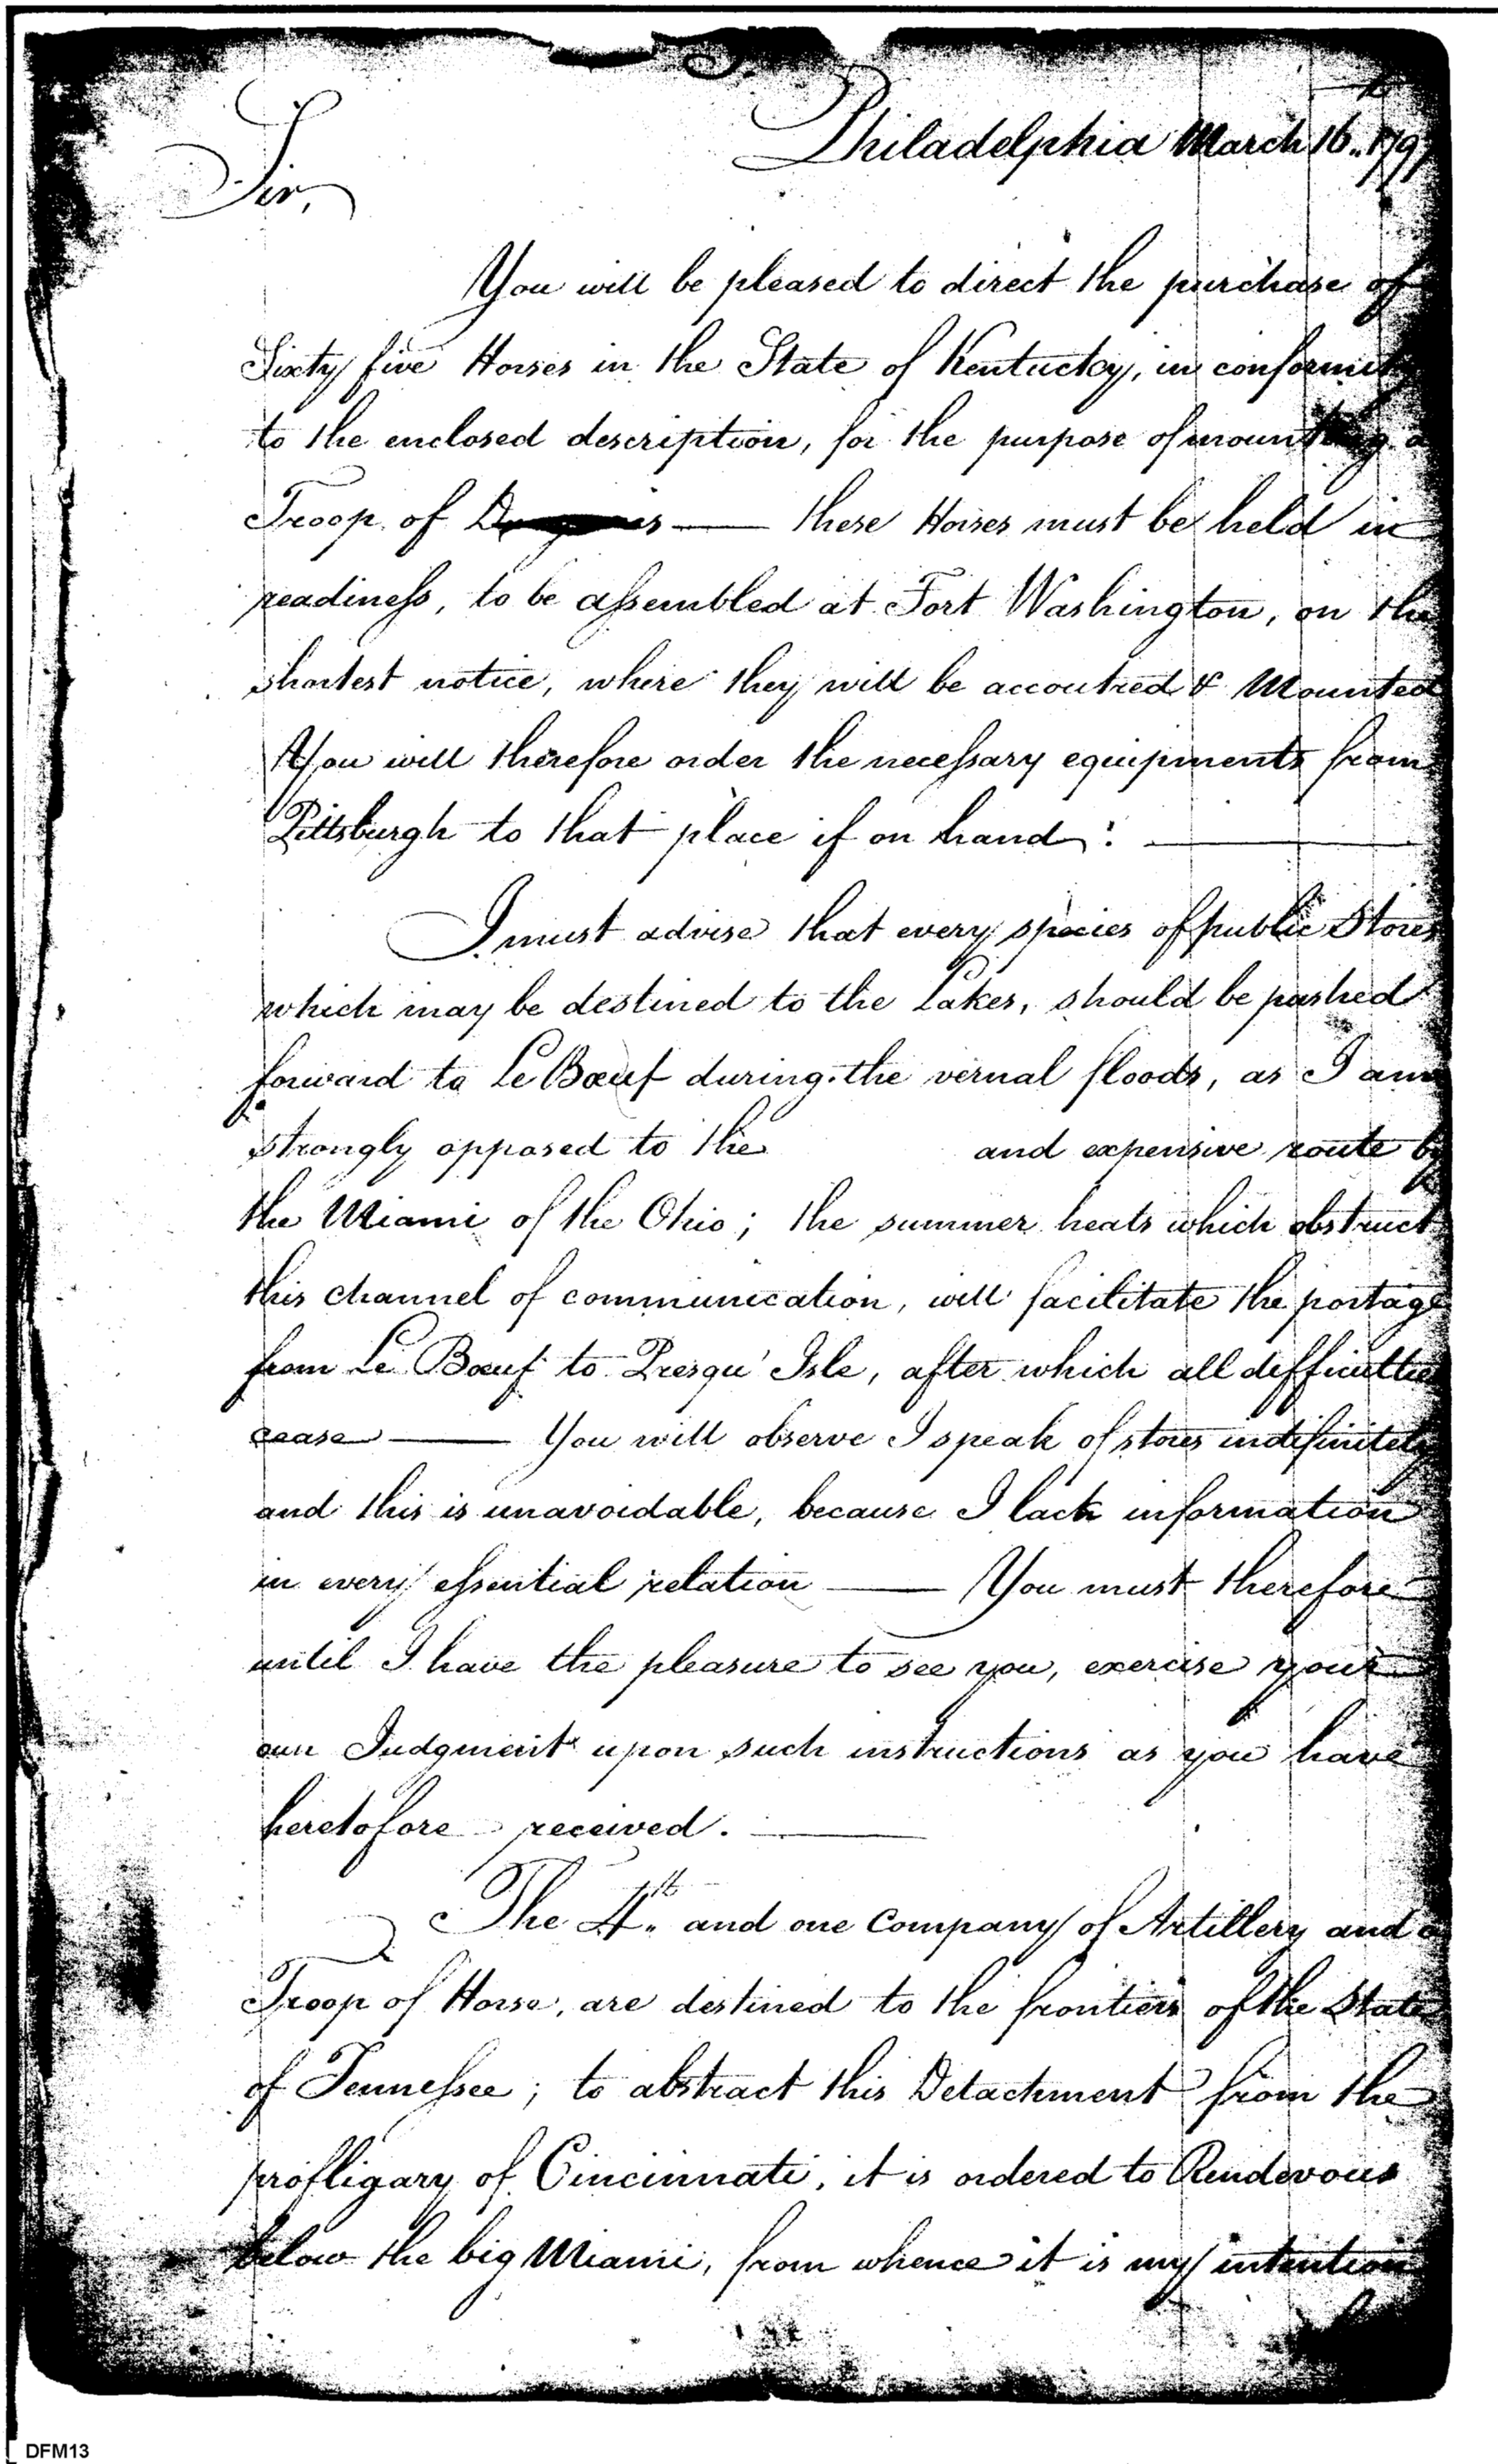 Philadelphia March 16.. 1797
Sir,
You will be pleased to direct the purchase of
Sixty five Horses in the State of Kentucky, in conformity
to the enclosed description, for the purpose of mounting a
Troop of — these Horses must be held in
readiness, to be assembled at Fort Washington, on the
shortest notice, where they will be accoutred & Mounted
You will therefore order the necessary equipments from
Pittsburgh to that place if on hand :
I must advise that every species of public Stores
which may be destined to the Lakes, should be pushed
forward to Le Bœuf during the vernal floods, as I am
strongly opposed to the and expensive route by
the Miami of the Ohio ; the summer heats which obstruct
this channel of communication, will facilitate the portage
from Le Bœuf to Presqu' Isle, after which all difficulties
cease — You will observe I speak of stores indefinitely
and this is unavoidable, because I lack information
in every essential relation — You must therefore
until I have the pleasure to see you, exercise your
own Judgment upon such instructions as you have
heretofore received. —
The 4th and one Company of Artillery and a
Troop of Horse, are destined to the frontiers of the State
of Tennessee ; to abstract this Detachment from the
profligary of Cincinnati, it is ordered to Rendevous
below the big Miami, from whence it is my intention
DFM13